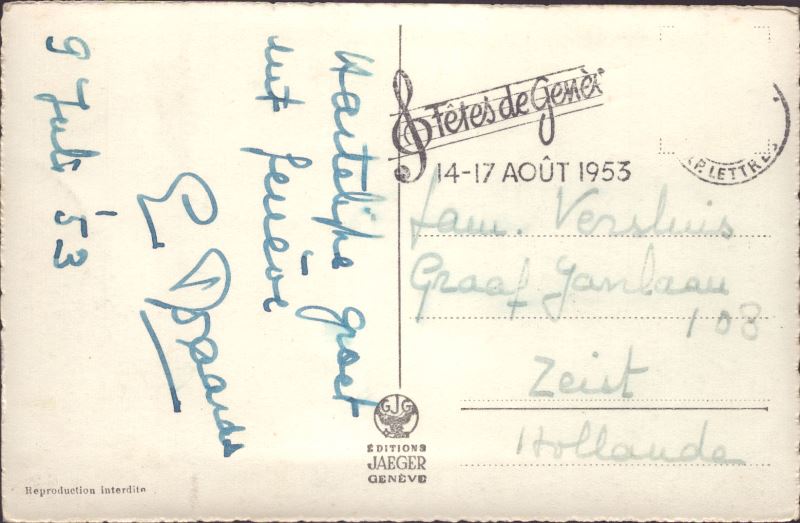 9 Juli '53
Hartelijke groet
uit Genève
Fêtes de Genè
14-17 AOÛT 1953
P. LETTRE
Fam. Versluis
Graaf Janlaan
108
Zeist
Hollande
GJG
ÉDITIONS
JAEGER
GENÈVE
Reproduction interdite